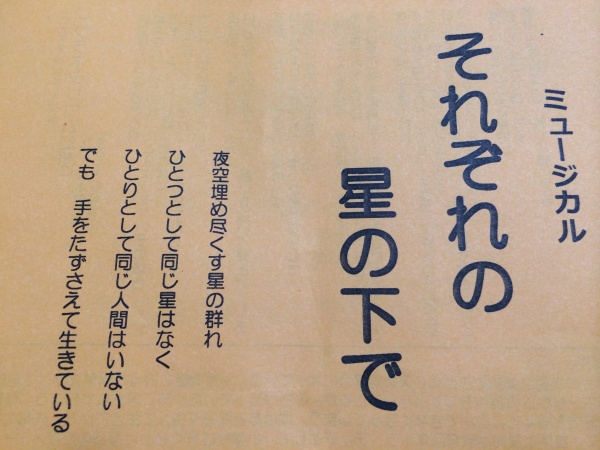 ミュージカル
それぞれの
星の下で
夜空埋め尽くす星の群れ
ひとつとして同じ星はなく
ひとりとして同じ人間はいない
でも　手をたずさえて生きている